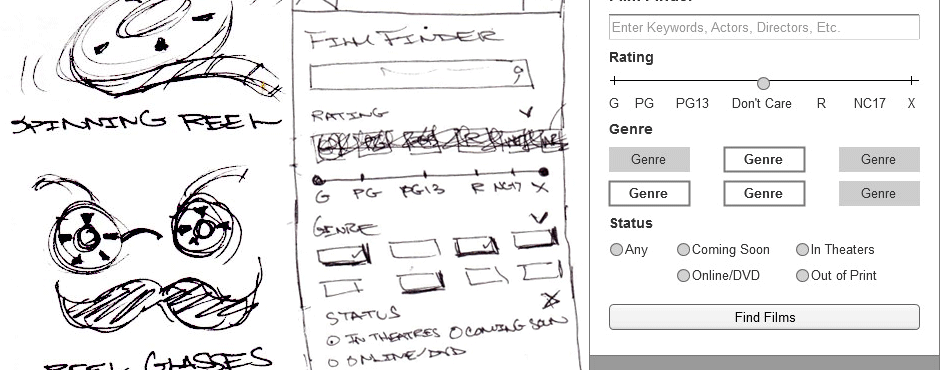 SPINNING REEL
REEL GLASSES
FILM FINDER
RATING
G PG PG13 R NC17 X
GENRE
STATUS
IN THEATRES COMING SOON
ONLINE/DVD
Film Finder
Enter Keywords, Actors, Directors, Etc.
Rating
G PG PG13 Don't Care R NC17 X
Genre
Genre Genre Genre
Genre Genre Genre
Status
Any Coming Soon In Theaters
Online/DVD Out of Print
Find Films